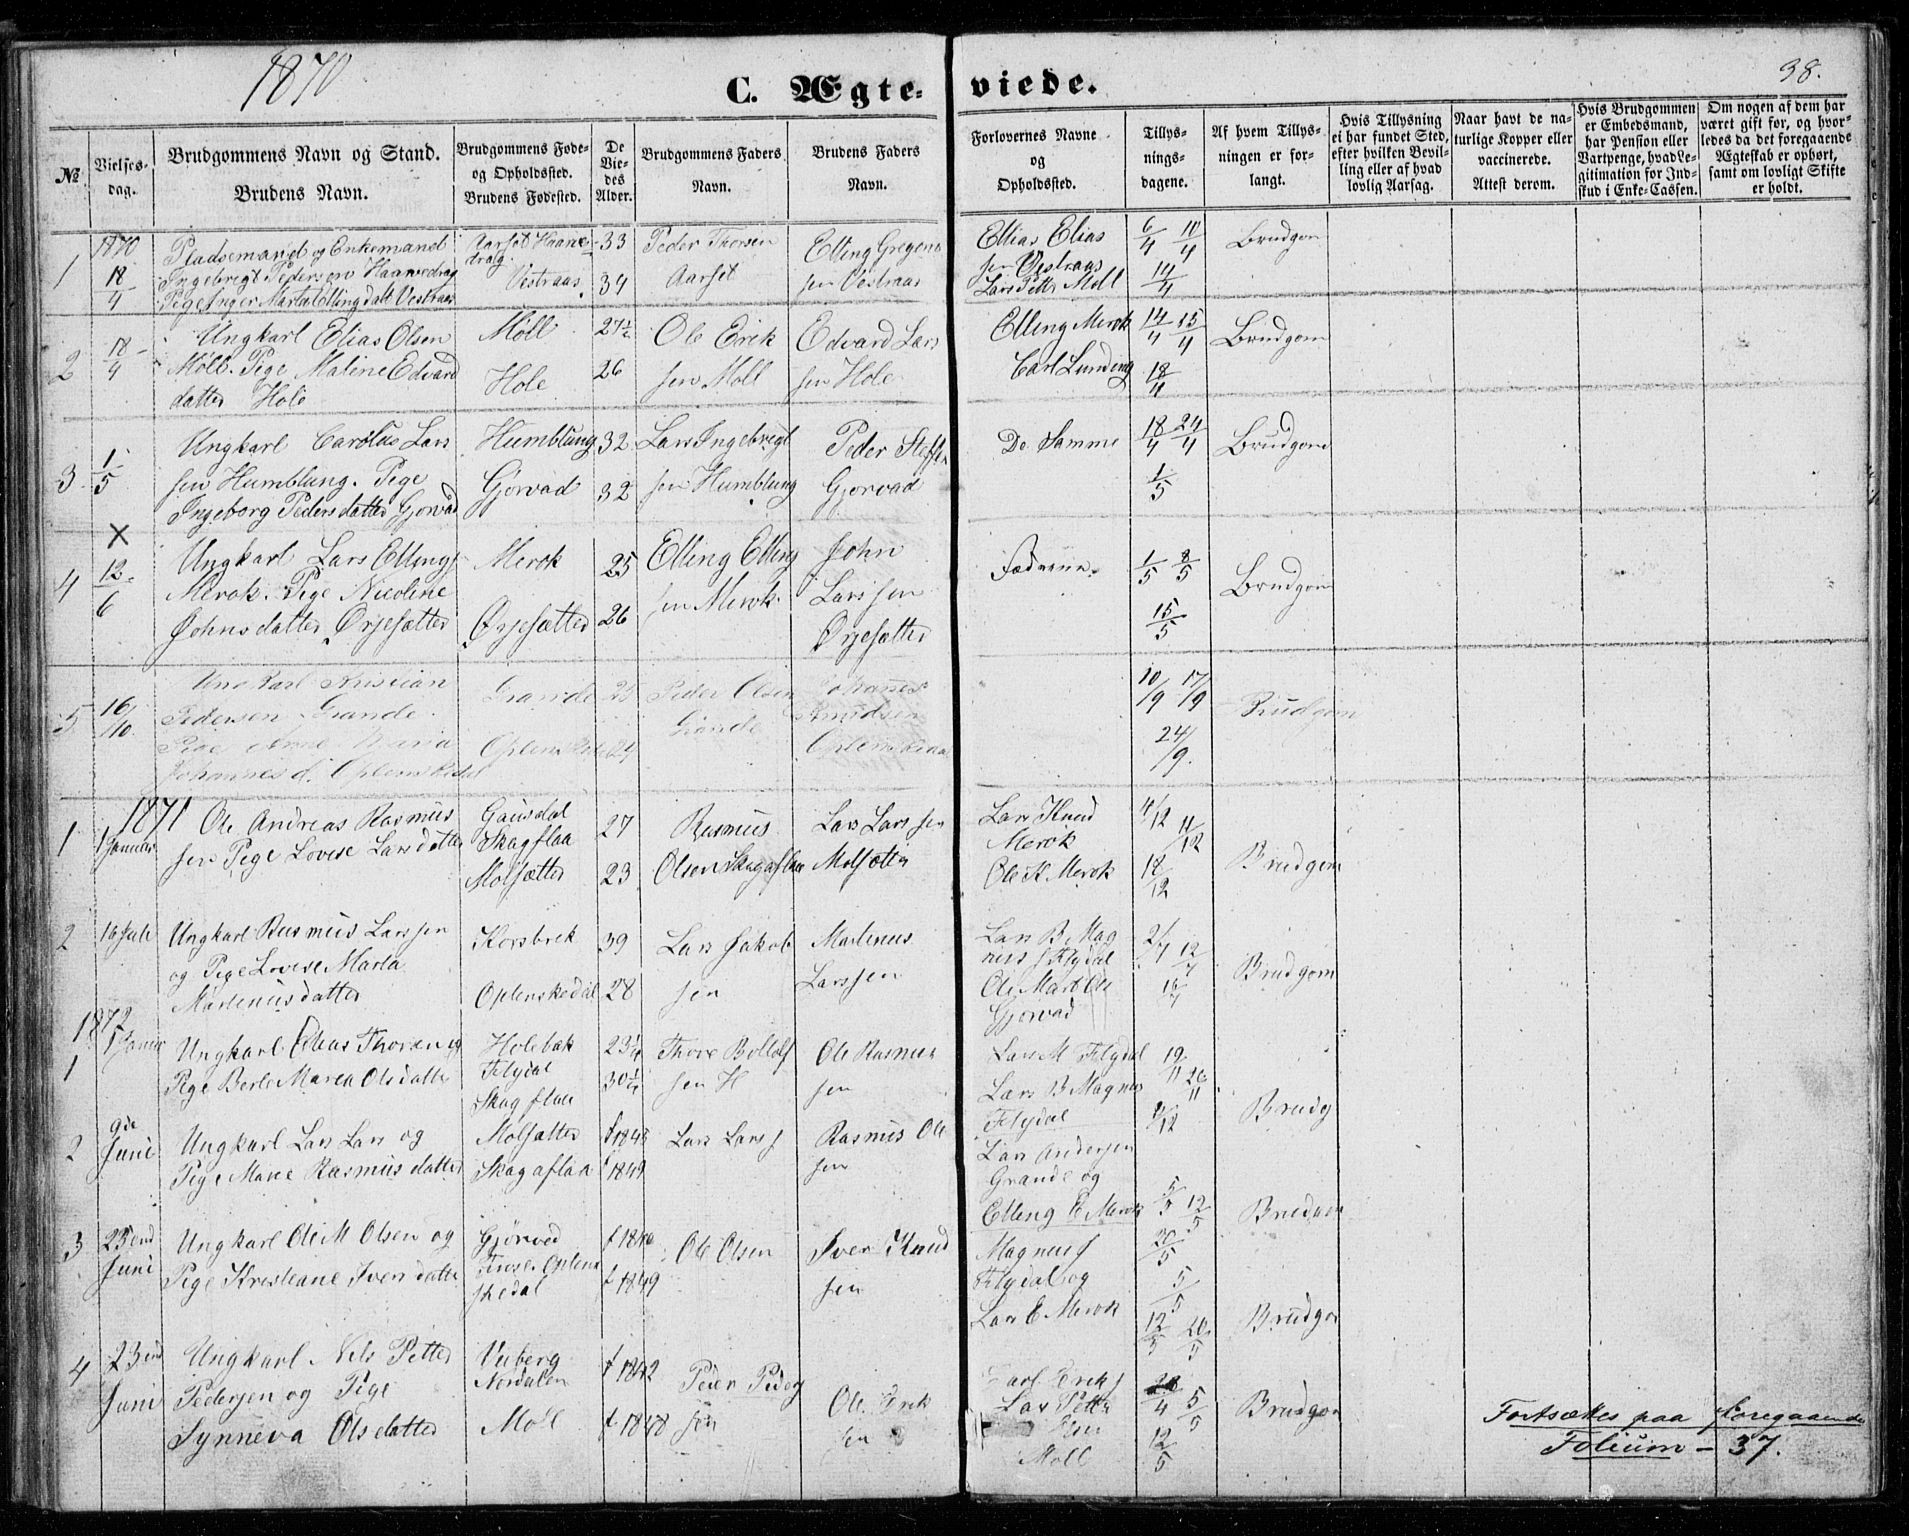 1870
C. Ægte-
viede.
38.
No
Vielses-
dag.
Brudgommens Navn og Stand.
Brudens Navn.
Brudgommens Føde-
og Opholdssted.
Brudens Fødested.
De
Vie-
des
Alder.
Brudgommens Faders
Navn.
Brudens Faders
Navn.
Forlovernes Navne
og
Opholdssted.
Tillys-
nings-
dagene.
Af hvem Tillys-
ningen er for-
langt.
Hvis Tillysning
ei har fundet Sted,
efter hvilken Bevil-
ling eller af hvad
lovlig Aarsag.
Naar havt de na-
turlige Kopper eller
vaccinerede.
Attest derom.
Hvis Brudgommen
er Embedsmand,
har Pension eller
Vartpenge, hvad Le-
gitimation for Ind-
skud i Enke-Cassen.
Om nogen af dem har
været gift før, og hvor-
ledes da det foregaaende
Ægteskab er ophørt,
samt om lovligt Skifte
er holdt.
1
1870
18/4
Pladsemand og Enkemand
Ingebregt Pedersen Haanedrag
Pige Inger Marta Ellingdatt Vestraas
Aarset Haane
drag
Vestraas
33
34
Peder Thorsen
Aarset
Elling Gregers
sen Vestraas
Ellias Elias
sen Vestraas
Lars Pett Moll
6/4 10/4
14/4
Brudgom
2
18/4
Ungkarl Elias Olsen
Möll. Pige Maline Edvard
datter Hole
Möll
Hole
27½
26
Ole Erik
sen Moll
Edvard Lars
sen Hole
Elling Merok
Carl Lundeng
14/4 15/4
18/4
Brudgom
3
1/5
Ungkarl Carolus Lars
sen Humblung. Pige
Ingeborg Pedersdatter Gjørvad
Humblung
Gjørvad
32
32
Lars Ingebregt
sen Humblung
Peder Steffen
Gjørvad
De Samme
18/4 24/4
1/5
Brudgom
×
4
12/6
Ungkarl Lars Ellings
Merok. Pige Nicoline
Johnsdatter Ørjesætter
Merok
Ørjesætter
25
26
Elling Elling
sen Merok
John
Larssen
Ørjesætter
Fædrene
1/5 8/5
15/5
Brudgom
5
16/10
Ungkarl Kristian
Pedersen Grande.
Pige Anne Maria
Johannesd. Oplenskedal
Grande
Oplenskedal
25
24
Peder Olsen
Grande
Johanes
Knudsen
Oplenskedal
10/9 17/9
24/9.
Brudgom
1871
1
1 Januar
Ole Andreas Rasmus
sen Pige Lovise Larsdatter
Gausdal
Skagflaa
Molsætter
27
23
Rasmus
Olsen Skagaflaa
Lars Lars sen
Molsætter
Lars Knud
Merok
Ole K. Merok
4/12 11/12
18/12
Brudgom
2
16 Juli
Ungkarl Rasmus Larssen
og Pige Lovise Marta
Martenusdatter
Korsbrek
Oplenskedal
39
28
Lars Jakob
sen
Martenus
Larssen
Lars B. Mag
nus s Flydal
Ole Mart Ole
Gjørvad
2/7 12/7
16/7
Brudgom
1872
1
1 Januar
Ungkarl Elias Thoresen og
Pige Berte Maria Olsdatter
Holebak
Flydal
Skagflaa
23¼
30¼
Thore Bottolf
sen H
Ole Rasmus
sen
Lars M Flydal
Lars B Magnus
Flydal
19/11 26/11
Brudg
2
9de
Juni
Ungkarl Lars Lars og
Pige Marie Rasmusdatter
Molsætter
Skagaflaa
f 1843
f 1849
Lars Lars s
Rasmus Ole
sen
Lars Andersen
Grande og
Elling E Merok
5/5 12/5
20/5
Brudgom
3
23end
Juni
Ungkarl Ole M Olsen og
Pige Kristiane Iversdatter
Gjørvad
Oplens
skedal
f 1840
f 1849
Ole Olsen
Iver Knud
sen
Magnus s
Flydal og
Lars E Merok
5/5
12/5 20/5
Brudgom
4
23end
Juni
Ungkarl Nels Petter
Pedersen og Pige
Synneva Olsdatter
Viberg
Nordalen
Moll
f 1842
f 1848
Peder Peder
sen
Ole Erik
sen
Carl Erik s
Lars Petter
Moll
28/4 5/5
12/5
Brudgom
Fortsættes paa foregaaende
Folium - 37.